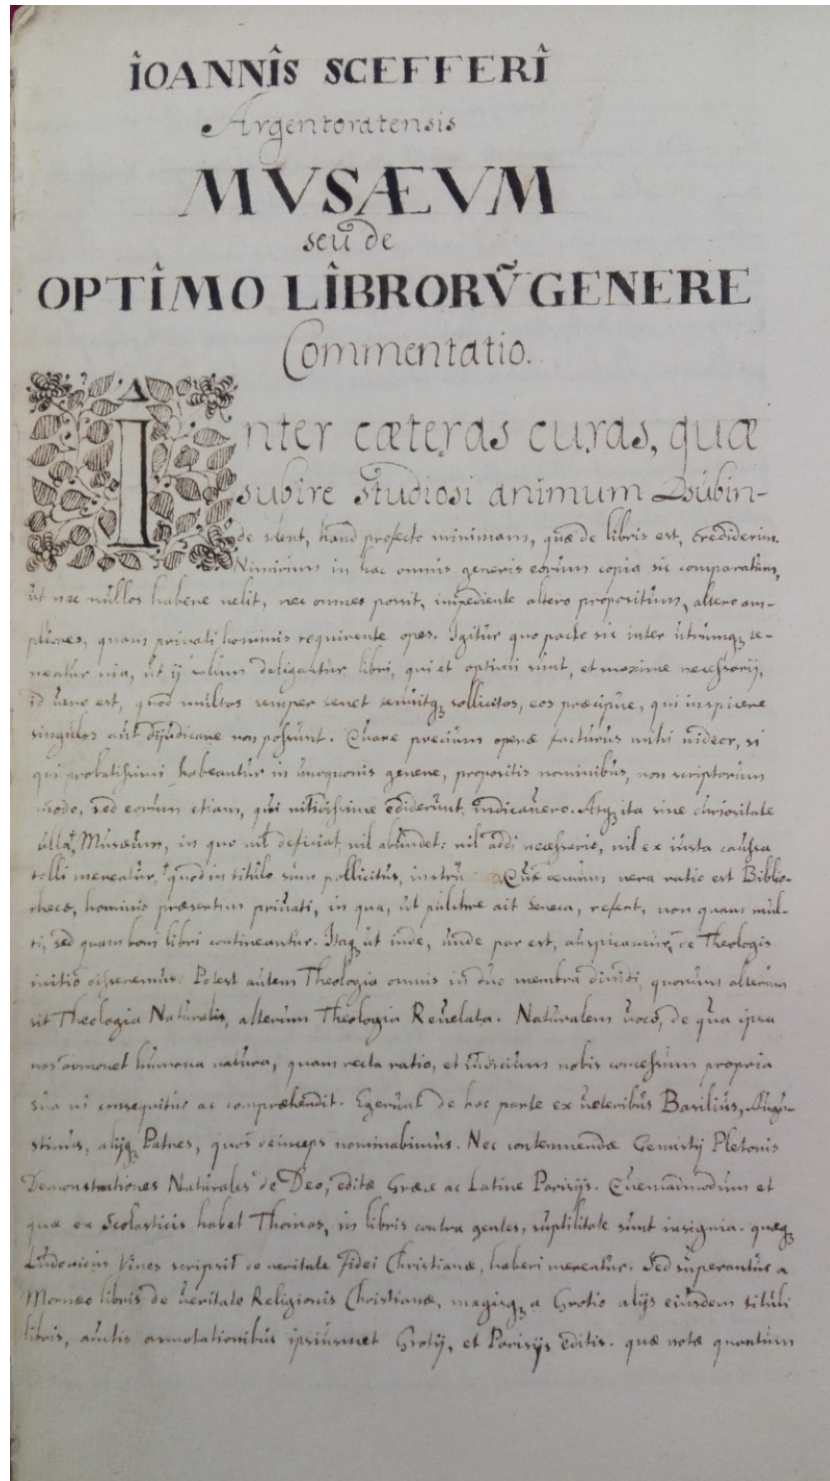 IOANNIS SCEFFERI
Argentoratensis
MVSÆVM
seu de
OPTIMO LIBRORṼ GENERE
Commentatio.
Inter cæteras curas, quæ
subire studiosi animum subin-
de solent, haud profecto minimam, quæ de libris est, crediderim.
Nimirum in hac omnis generis eorum copia sic comparatum,
ut nec nullos habere velit, nec omnes possit, impediente altero propositum, altero am-
pliores, quam privati hominis requirente opes. Igitur quo pacto sic inter utrumq; te-
neatur via, ut ij solum deligantur libri, qui et optimi sunt, et maxime necessarij,
id vero est, quod multos semper tenet tenuitq; sollicitos, eos præcipue, qui inspicere
singulos aut dijudicare non possunt. Quare precium operæ facturus mihi videor, si
qui probatissimi habeantur in unoquoque genere, propositis nominibus, non scriptorum
modo, sed eorum etiam, qui nitidissime ediderunt, indicavero. Atq; ita sine curiositate
ulla, Musæum, in quo nil deficiat, nil abundet: nil addi necessario, nil ex iusta caussa
tolli mereatur, quod in titulo sum pollicitus, Quæ omnium vera ratio est Biblio-
thecæ, hominis præsertim privati, in qua, ut pulchre ait Seneca, refert, non quam mul-
ti, sed quam boni libri contineantur. Itaq; ut inde, unde par est, auspicamur, de Theologis
initio disseremus. Potest autem Theologia omnis in duo membra dividi, quorum alterum
sit Theologia Naturalis, alterum Theologia Revelata. Naturalem voco, de qua ipsa
nos admonet humana natura, quam recta ratio, et iudicium nobis concessum propria
sua vi consequitur ac compræhendit. Egerunt de hoc parte ex veteribus Basilius, Augu-
stinus, alijq; Patres, quos deinceps nominabimus. Nec contemnendæ Gemistij Pletonis
Demonstrationes Naturales de Deo, editæ Græce ac Latine Parisijs. Quemadmodum et
quæ ex Scolasticis habet Thomas, in libris contra gentes, suptilitate sunt insignia. quæq;
Ludovicus Vives scripsit de veritate fidei Christianæ, haberi mereatur. Sed superantur a
Morneo libris de veritate Religionis Christianæ, magisq; a Grotio alijs eiusdem tituli
libris, auctis annotationibus ipsiusmet Grotij, et Parisijs editis. quæ notæ quantum